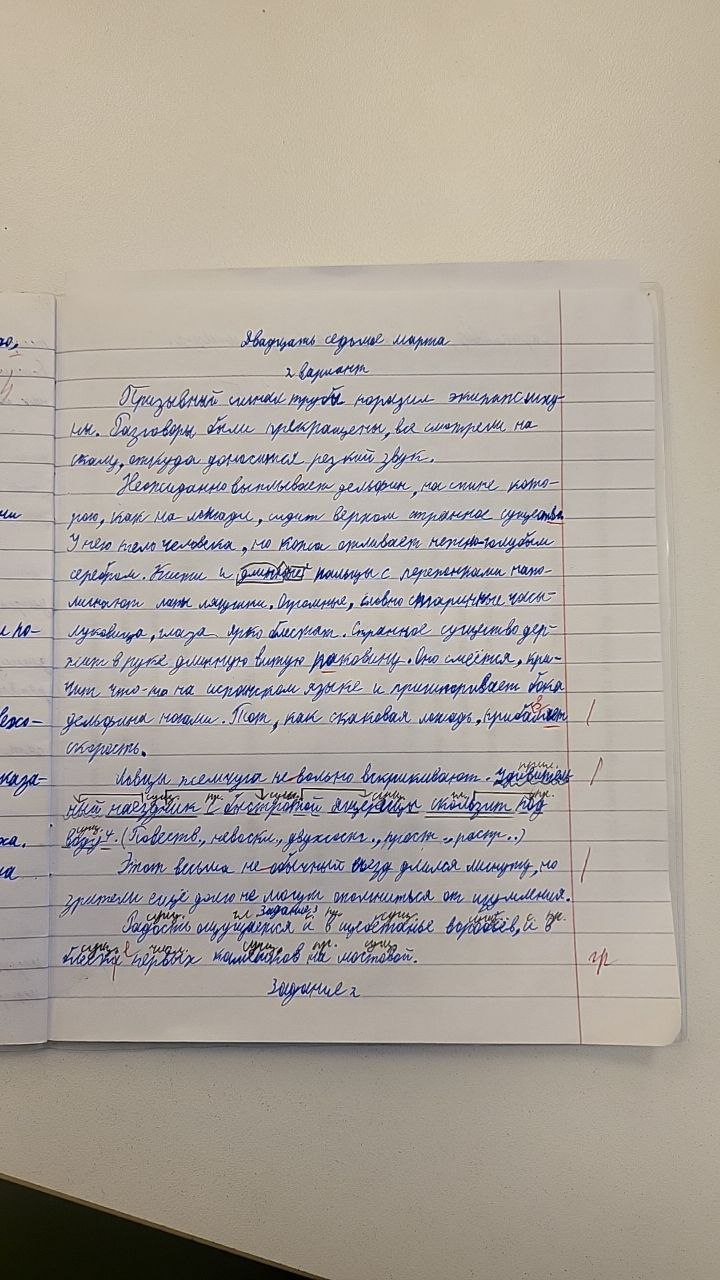 Двадцать седьмое марта
2 вариант
Призывный сигнал трубы поразил экипаж шху-
ны. Разговоры были прекращены, все смотрели на
скалу, откуда доносится резкий звук.
Неожиданно выплывает дельфин, на спине кото-
рого, как на лошади, сидит верхом странное существо.
У него тело человека, но кожа отливает нежно-голубым
серебром. Кисти и длинные пальцы с перепонками напо-
минают лапы лягушки. Огромные, словно старинные часы-
луковица, глаза ярко блестят. Странное существо дер-
жит в руке длинную витую раковину. Оно смеётся, кри-
чит что-то на испанском языке и пришпоривает бока
дельфина ногами. Тот, как скаковая лошадь, прибавляет
скорость.
Ловцы жемчуга не вольно вскрикивают. Удивитель
прил.
ный наездник с быстротой ящерицы скользит под
сущ. пр. сущ. сущ. гл. пр.
воду⁴. (Повеств., невоскл., двухсост., прост., распр..)
сущ.
Этот весьма не обычный въезд длился минуту, но
зрители ещё долго не могут опомниться от изумления.
Задание 1
Радость ощущается и в щебетанье воробьёв, и в
сущ. гл. пр. сущ. сущ. с. пр.
блеске первых камешков на мостовой.
сущ. числ. сущ. пр. сущ.
Задание 2